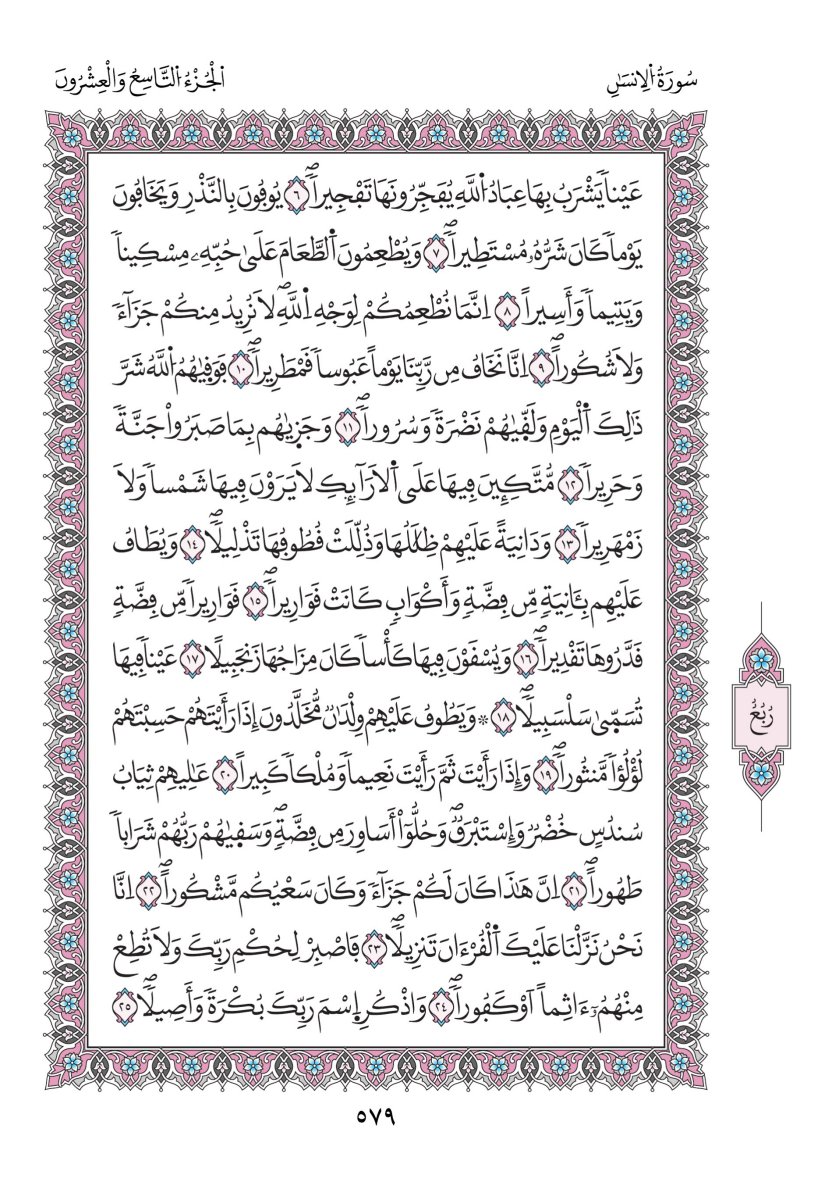 سُورَةُ اُ۬لِانسَٰنِ
اَ۬لْجُزْءُ اُ۬لتَّاسِعُ وَالْعِشْرُونَ
عَيْناٗ يَشْرَبُ بِهَا عِبَادُ اُ۬للَّهِ يُفَجِّرُونَهَا تَفْجِيراٗۖ ٦ يُوفُونَ بِالنَّذْرِ وَيَخَافُونَ
يَوْماٗ كَانَ شَرُّهُۥ مُسْتَطِيراٗۖ ٧ وَيُطْعِمُونَ اَ۬لطَّعَامَ عَلَىٰ حُبِّهِۦ مِسْكِيناٗ
وَيَتِيماٗ وَأَسِيراًۖ ٨ اِنَّمَا نُطْعِمُكُمْ لِوَجْهِ اِ۬للَّهِۖ لَا نُرِيدُ مِنكُمْ جَزَآءٗ
وَلَا شُكُوراًۖ ٩ اِنَّا نَخَافُ مِن رَّبِّنَا يَوْماً عَبُوساٗ قَمْطَرِيراٗۖ ١٠ فَوَقِيٰهُمُ اُ۬للَّهُ شَرَّ
ذَٰلِكَ اَ۬لْيَوْمِ وَلَقِّيٰهُمْ نَضْرَةٗ وَسُرُوراٗۖ ١١ وَجَزِيٰهُم بِمَا صَبَرُواْ جَنَّةٗ
وَحَرِيراٗ ١٢ مُّتَّكِـِٕينَ فِيهَا عَلَى اَ۬لَارَآئِكِ لَا يَرَوْنَ فِيهَا شَمْساٗ وَلَا
زَمْهَرِيراٗ ١٣ وَدَانِيَةً عَلَيْهِمْ ظِلَٰلُهَا وَذُلِّلَتْ قُطُوفُهَا تَذْلِيلاٗۖ ١٤ وَيُطَافُ
عَلَيْهِم بِـَٔانِيَةٖ مِّن فِضَّةٖ وَأَكْوَابٖ كَانَتْ قَوَارِيراٗۖ ١٥ قَوَارِيراٗ مِّن فِضَّةٖ
قَدَّرُوهَا تَقْدِيراٗۖ ١٦ وَيُسْقَوْنَ فِيهَا كَأْساٗ كَانَ مِزَاجُهَا زَنجَبِيلاً ١٧ عَيْناٗ فِيهَا
تُسَمّ۪ىٰ سَلْسَبِيلاٗۖ ١٨ ۞ وَيَطُوفُ عَلَيْهِمْ وِلْدَٰنٞ مُّخَلَّدُونَ إِذَا رَأَيْتَهُمْ حَسِبْتَهُمْ
لُؤْلُؤاٗ مَّنثُوراٗۖ ١٩ وَإِذَا رَأَيْتَ ثَمَّ رَأَيْتَ نَعِيماٗ وَمُلْكاٗ كَبِيراًۖ ٢٠ عَٰلِيهِمْ ثِيَابُ
سُندُسٍ خُضْرٞ وَإِسْتَبْرَقٞۖ وَحُلُّوٓاْ أَسَاوِرَ مِن فِضَّةٖۖ وَسَقِيٰهُمْ رَبُّهُمْ شَرَاباٗ
طَهُوراًۖ ٢١ اِنَّ هَٰذَا كَانَ لَكُمْ جَزَآءٗ وَكَانَ سَعْيُكُم مَّشْكُوراًۖ ٢٢ اِنَّا
نَحْنُ نَزَّلْنَا عَلَيْكَ اَ۬لْقُرْءَانَ تَنزِيلاٗۖ ٢٣ فَاصْبِرْ لِحُكْمِ رَبِّكَ وَلَا تُطِعْ
مِنْهُمُۥٓ ءَاثِماً اَوْ كَفُوراٗۖ ٢٤ وَاذْكُرِ اِ۪سْمَ رَبِّكَ بُكْرَةٗ وَأَصِيلاٗۖ ٢٥
رُبُعُ
٥٧٩